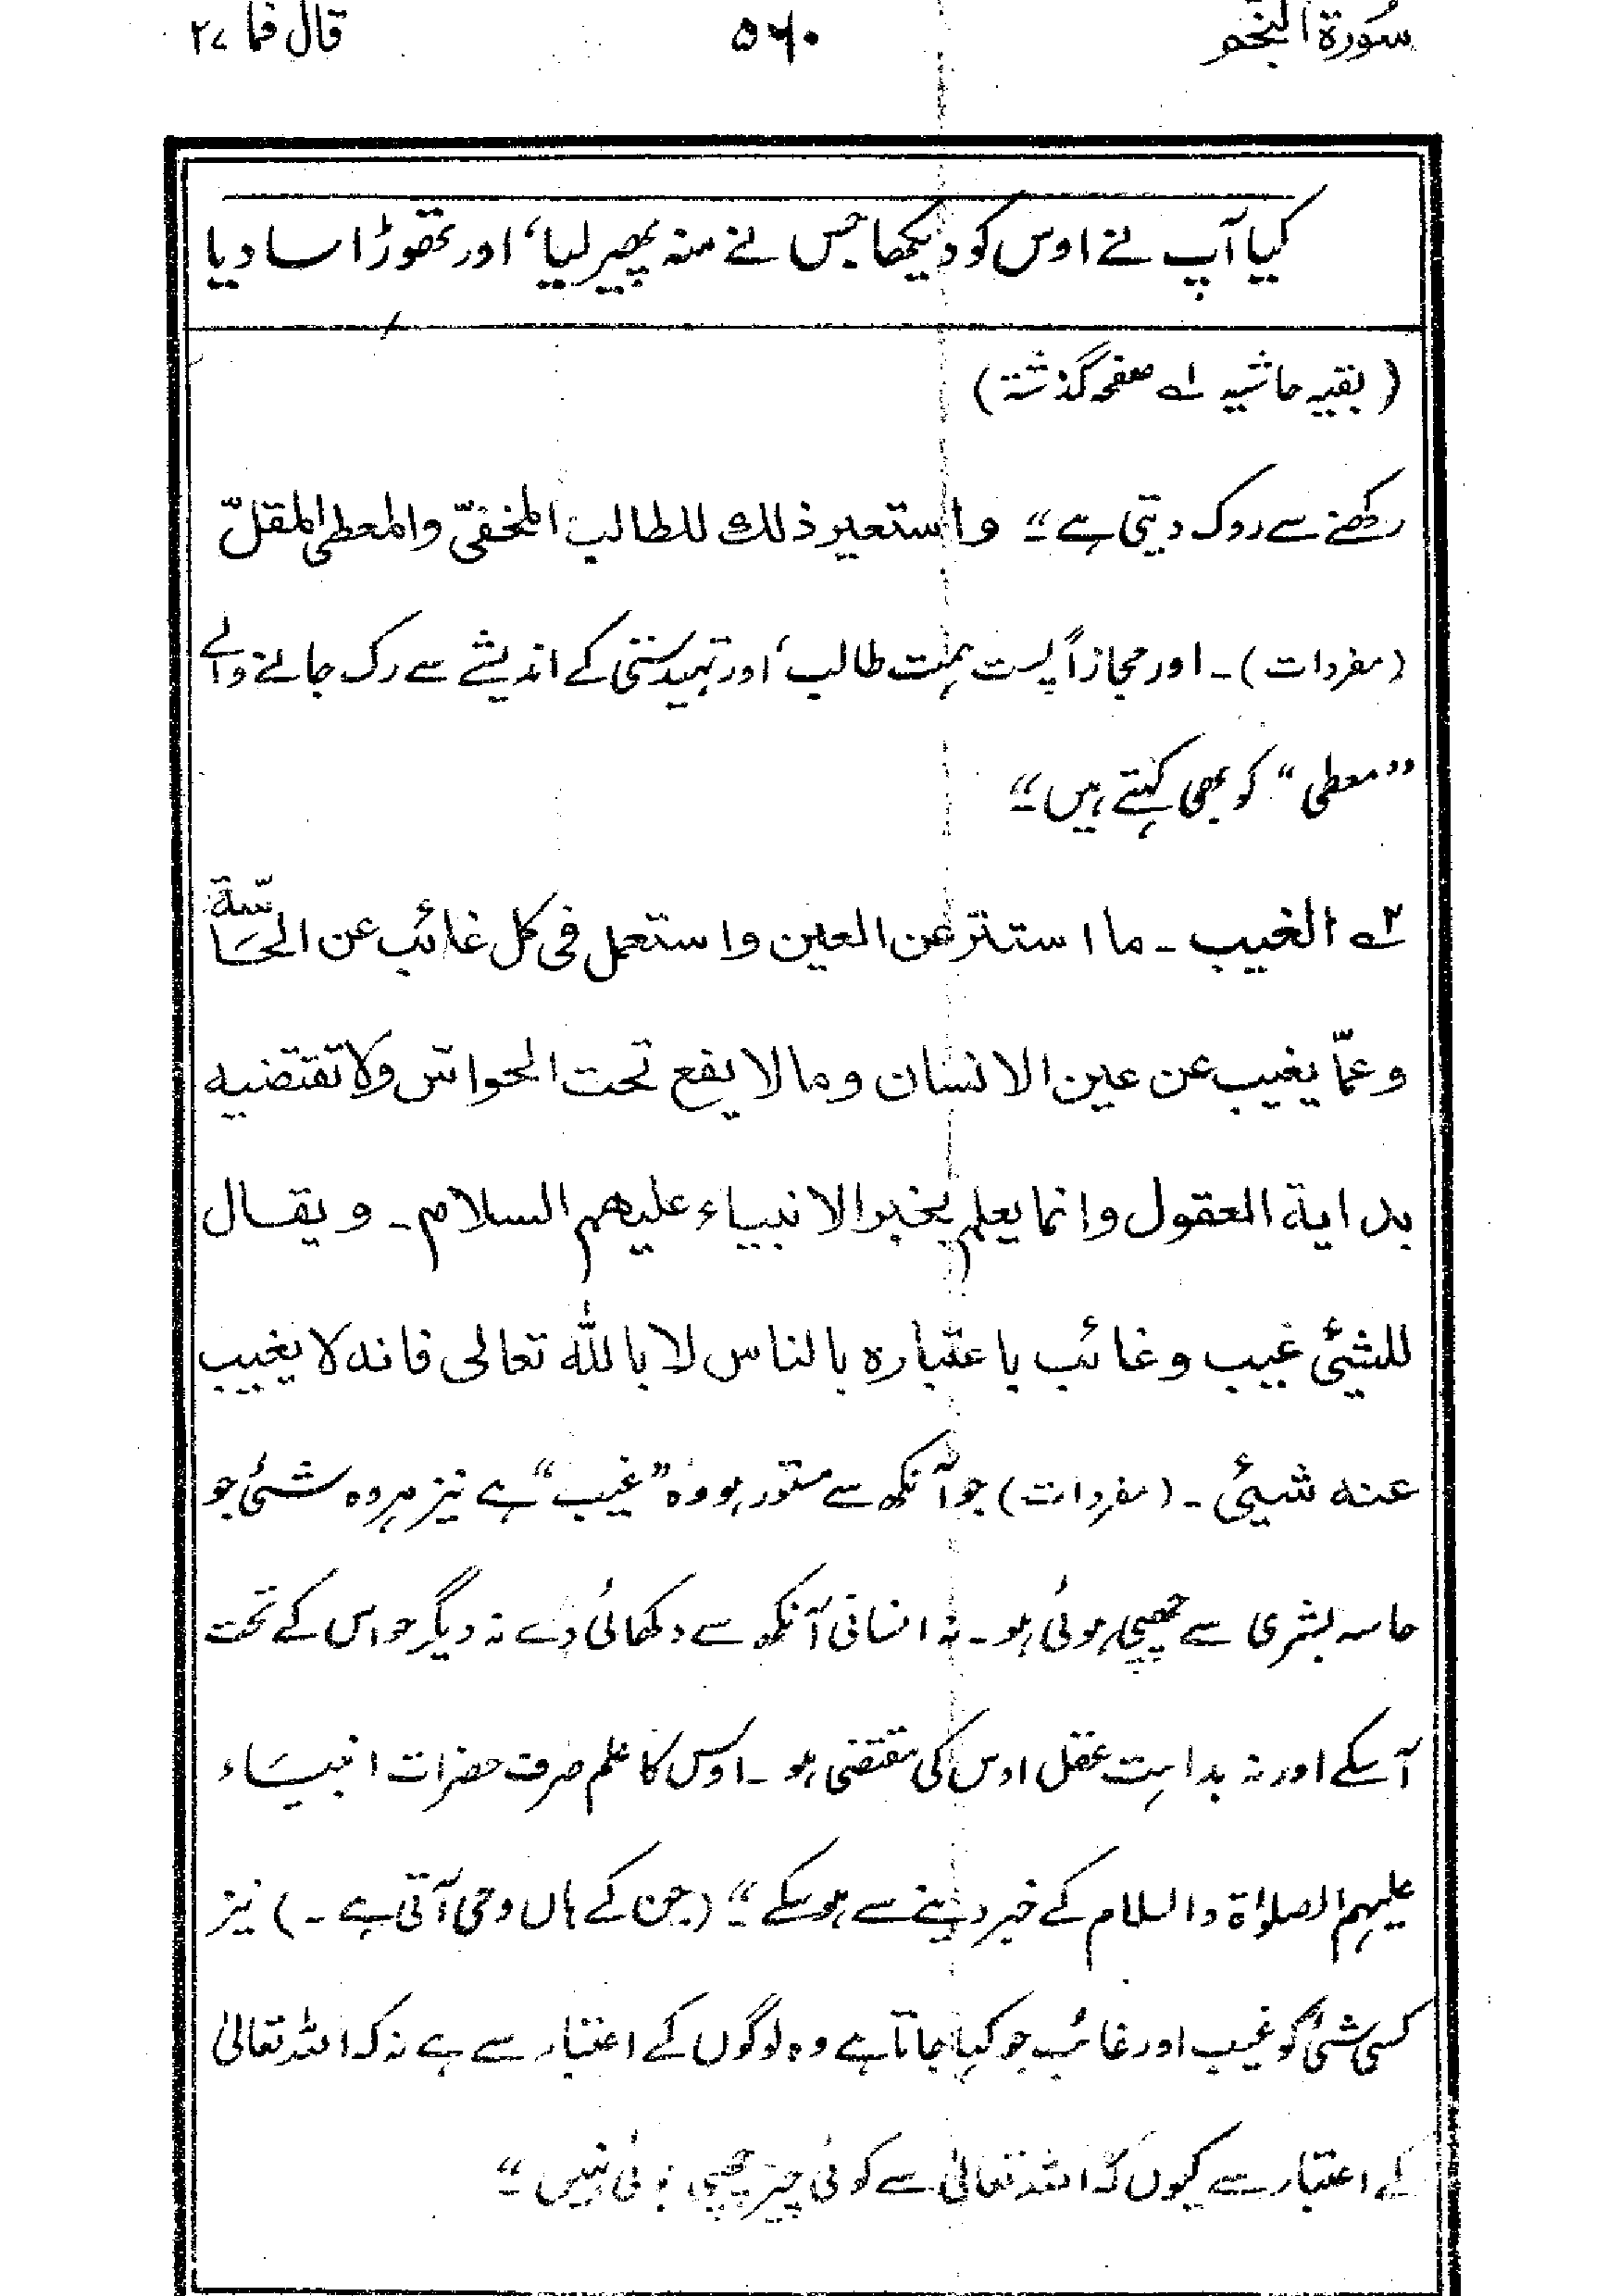 سُورۃ النجم
۵۶۰
قال فما ۲۷
کیا آپ نے اوس کو دیکھا جس نے منہ پھیر لیا، اور تھوڑا سا دیا
( بقیہ حاشیہ ۱؎ صفحہ گذشتہ)
رکھنے سے روک دیتی ہے“ واستعیر ذلك للطالب المخفّی والمعطی المقلّ
(مفردات)۔ اور مجازاً پست ہمت طالب، اور تہیدستی کے اندیشے سے رک جانے والے
”معطی“ کو بھی کہتے ہیں“
۲؎ الغیب۔ ما استتر عن العین واستعمل فی کل غائب عن الحَاسّة
وعمّا یغیب عن عین الانسان وما لا یقع تحت الحواس ولا تقتضیه
بدایة العقول وانما یعلم بخبر الانبیاء علیهم السلام۔ ویقال
للشیٔ غیب وغائب باعتباره بالناس لا باللّٰه تعالی فانه لا یغیب
عنه شیٔ۔ (مفردات) جو آنکھ سے مستور ہو وہ ”غیب“ ہے نیز ہر وہ شیٔ جو
حاسہ بشری سے چھپی ہوئی ہو۔ نہ انسانی آنکھ سے دکھائی دے نہ دیگر حواس کے تحت
آسکے اور نہ بداہت عقل اوس کی مقتضی ہو۔ اوس کا علم صرف حضرات انبیَاء
علیہم الصلوٰۃ والسلام کے خبر دینے سے ہوسکے“ (جن کے ہاں وحی آتی ہے۔) نیز
کسی شیٔ کو غیب اور غائب جو کہا جاتا ہے وہ لوگوں کے اعتبار سے ہے نہ کہ اللہ تعالیٰ
کے اعتبار سے کیوں کہ اللہ تعالیٰ سے کوئی چیز چھپی ہوئی نہیں“